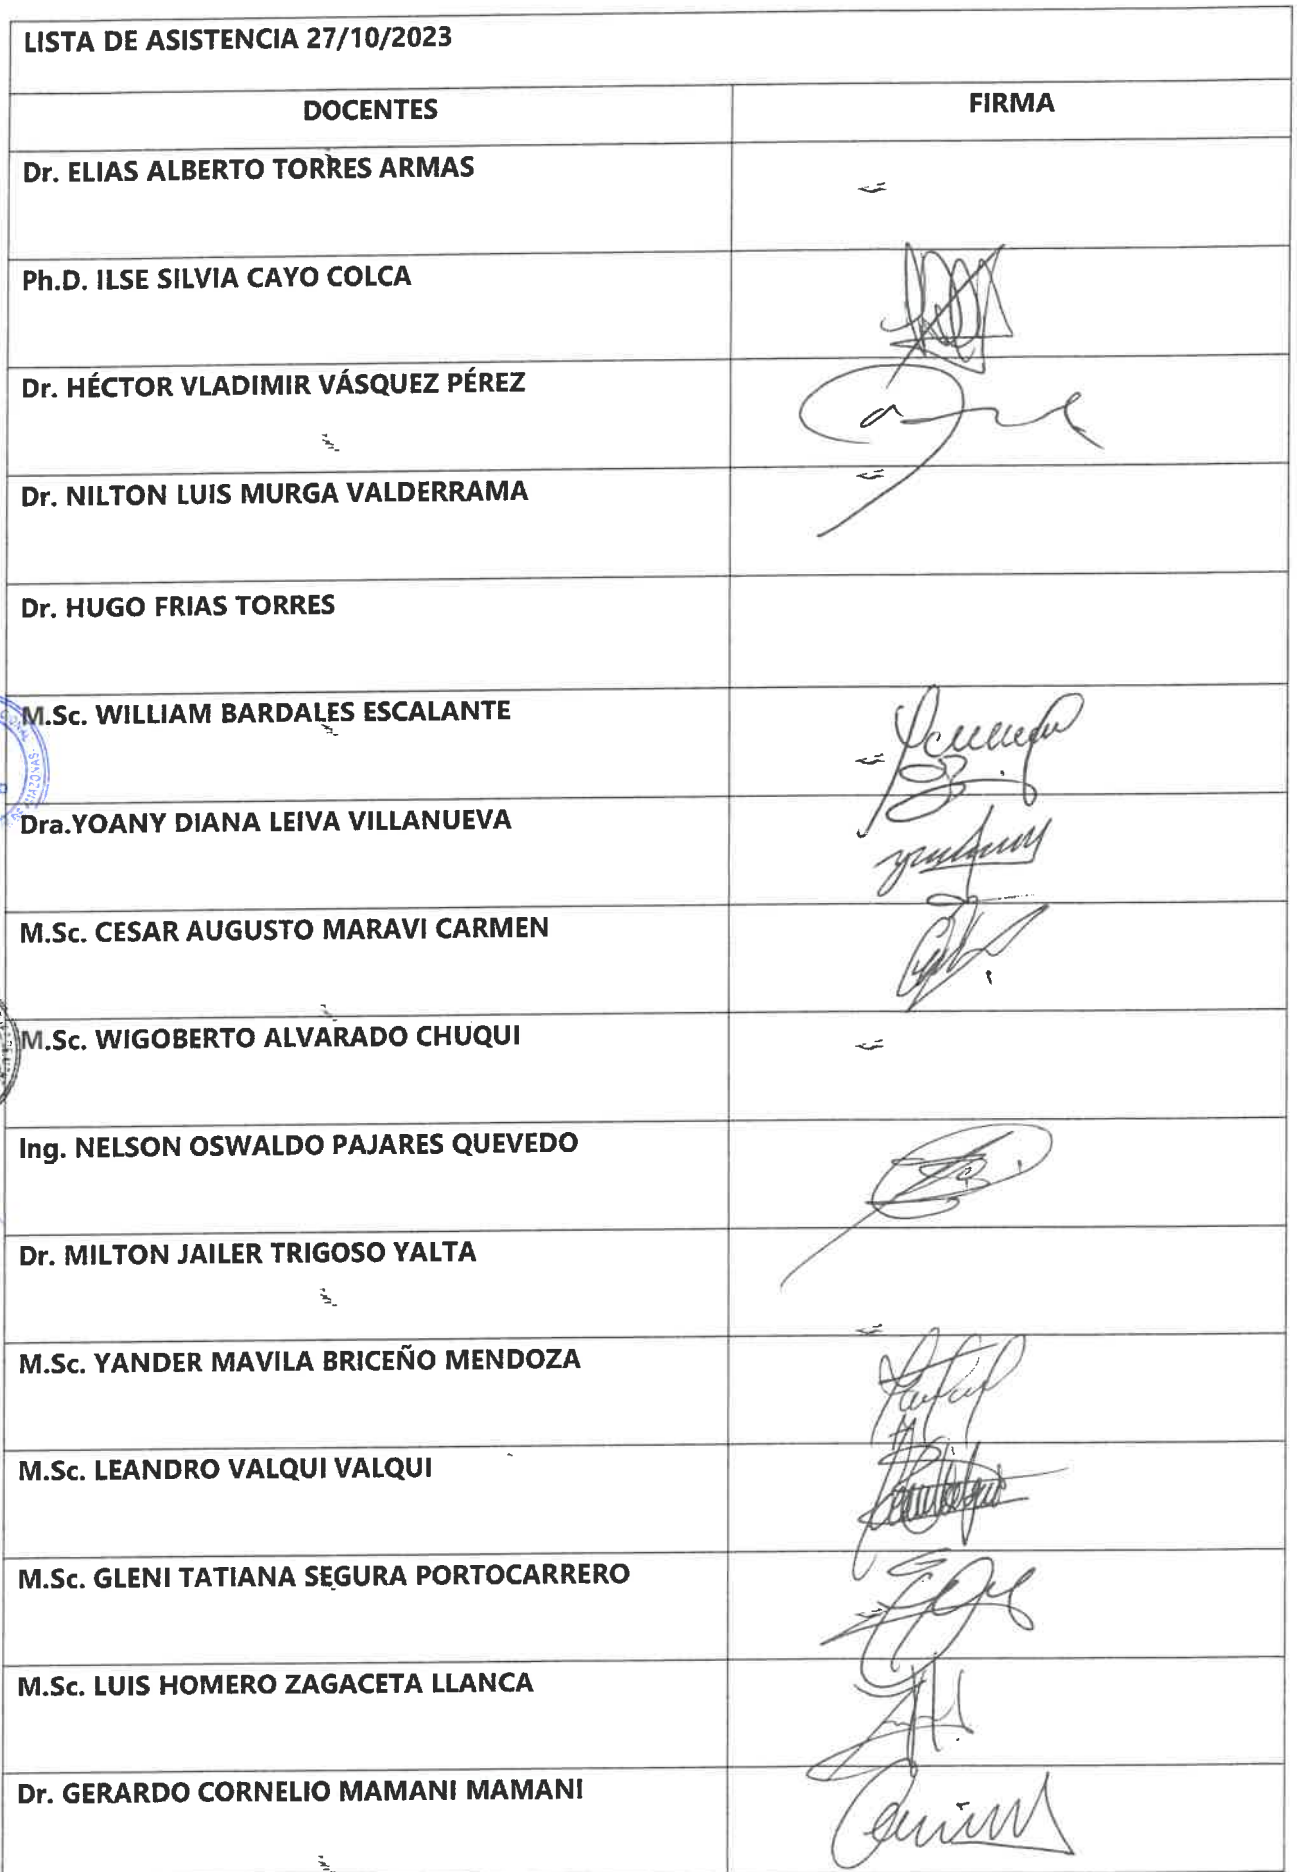 LISTA DE ASISTENCIA 27/10/2023
DOCENTES FIRMA
Dr. ELIAS ALBERTO TORRES ARMAS
Ph.D. ILSE SILVIA CAYO COLCA
Dr. HÉCTOR VLADIMIR VÁSQUEZ PÉREZ
Dr. NILTON LUIS MURGA VALDERRAMA
Dr. HUGO FRIAS TORRES
M.Sc. WILLIAM BARDALES ESCALANTE
Dra.YOANY DIANA LEIVA VILLANUEVA
M.Sc. CESAR AUGUSTO MARAVI CARMEN
M.Sc. WIGOBERTO ALVARADO CHUQUI
Ing. NELSON OSWALDO PAJARES QUEVEDO
Dr. MILTON JAILER TRIGOSO YALTA
M.Sc. YANDER MAVILA BRICEÑO MENDOZA
M.Sc. LEANDRO VALQUI VALQUI
M.Sc. GLENI TATIANA SEGURA PORTOCARRERO
M.Sc. LUIS HOMERO ZAGACETA LLANCA
Dr. GERARDO CORNELIO MAMANI MAMANI